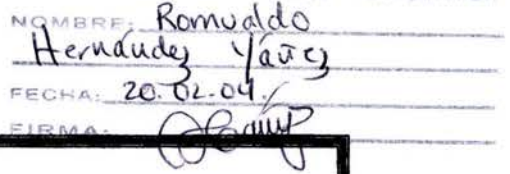 NOMBRE: Romualdo
Hernández Yáñez
FECHA: 20.02.04.
FIRMA: